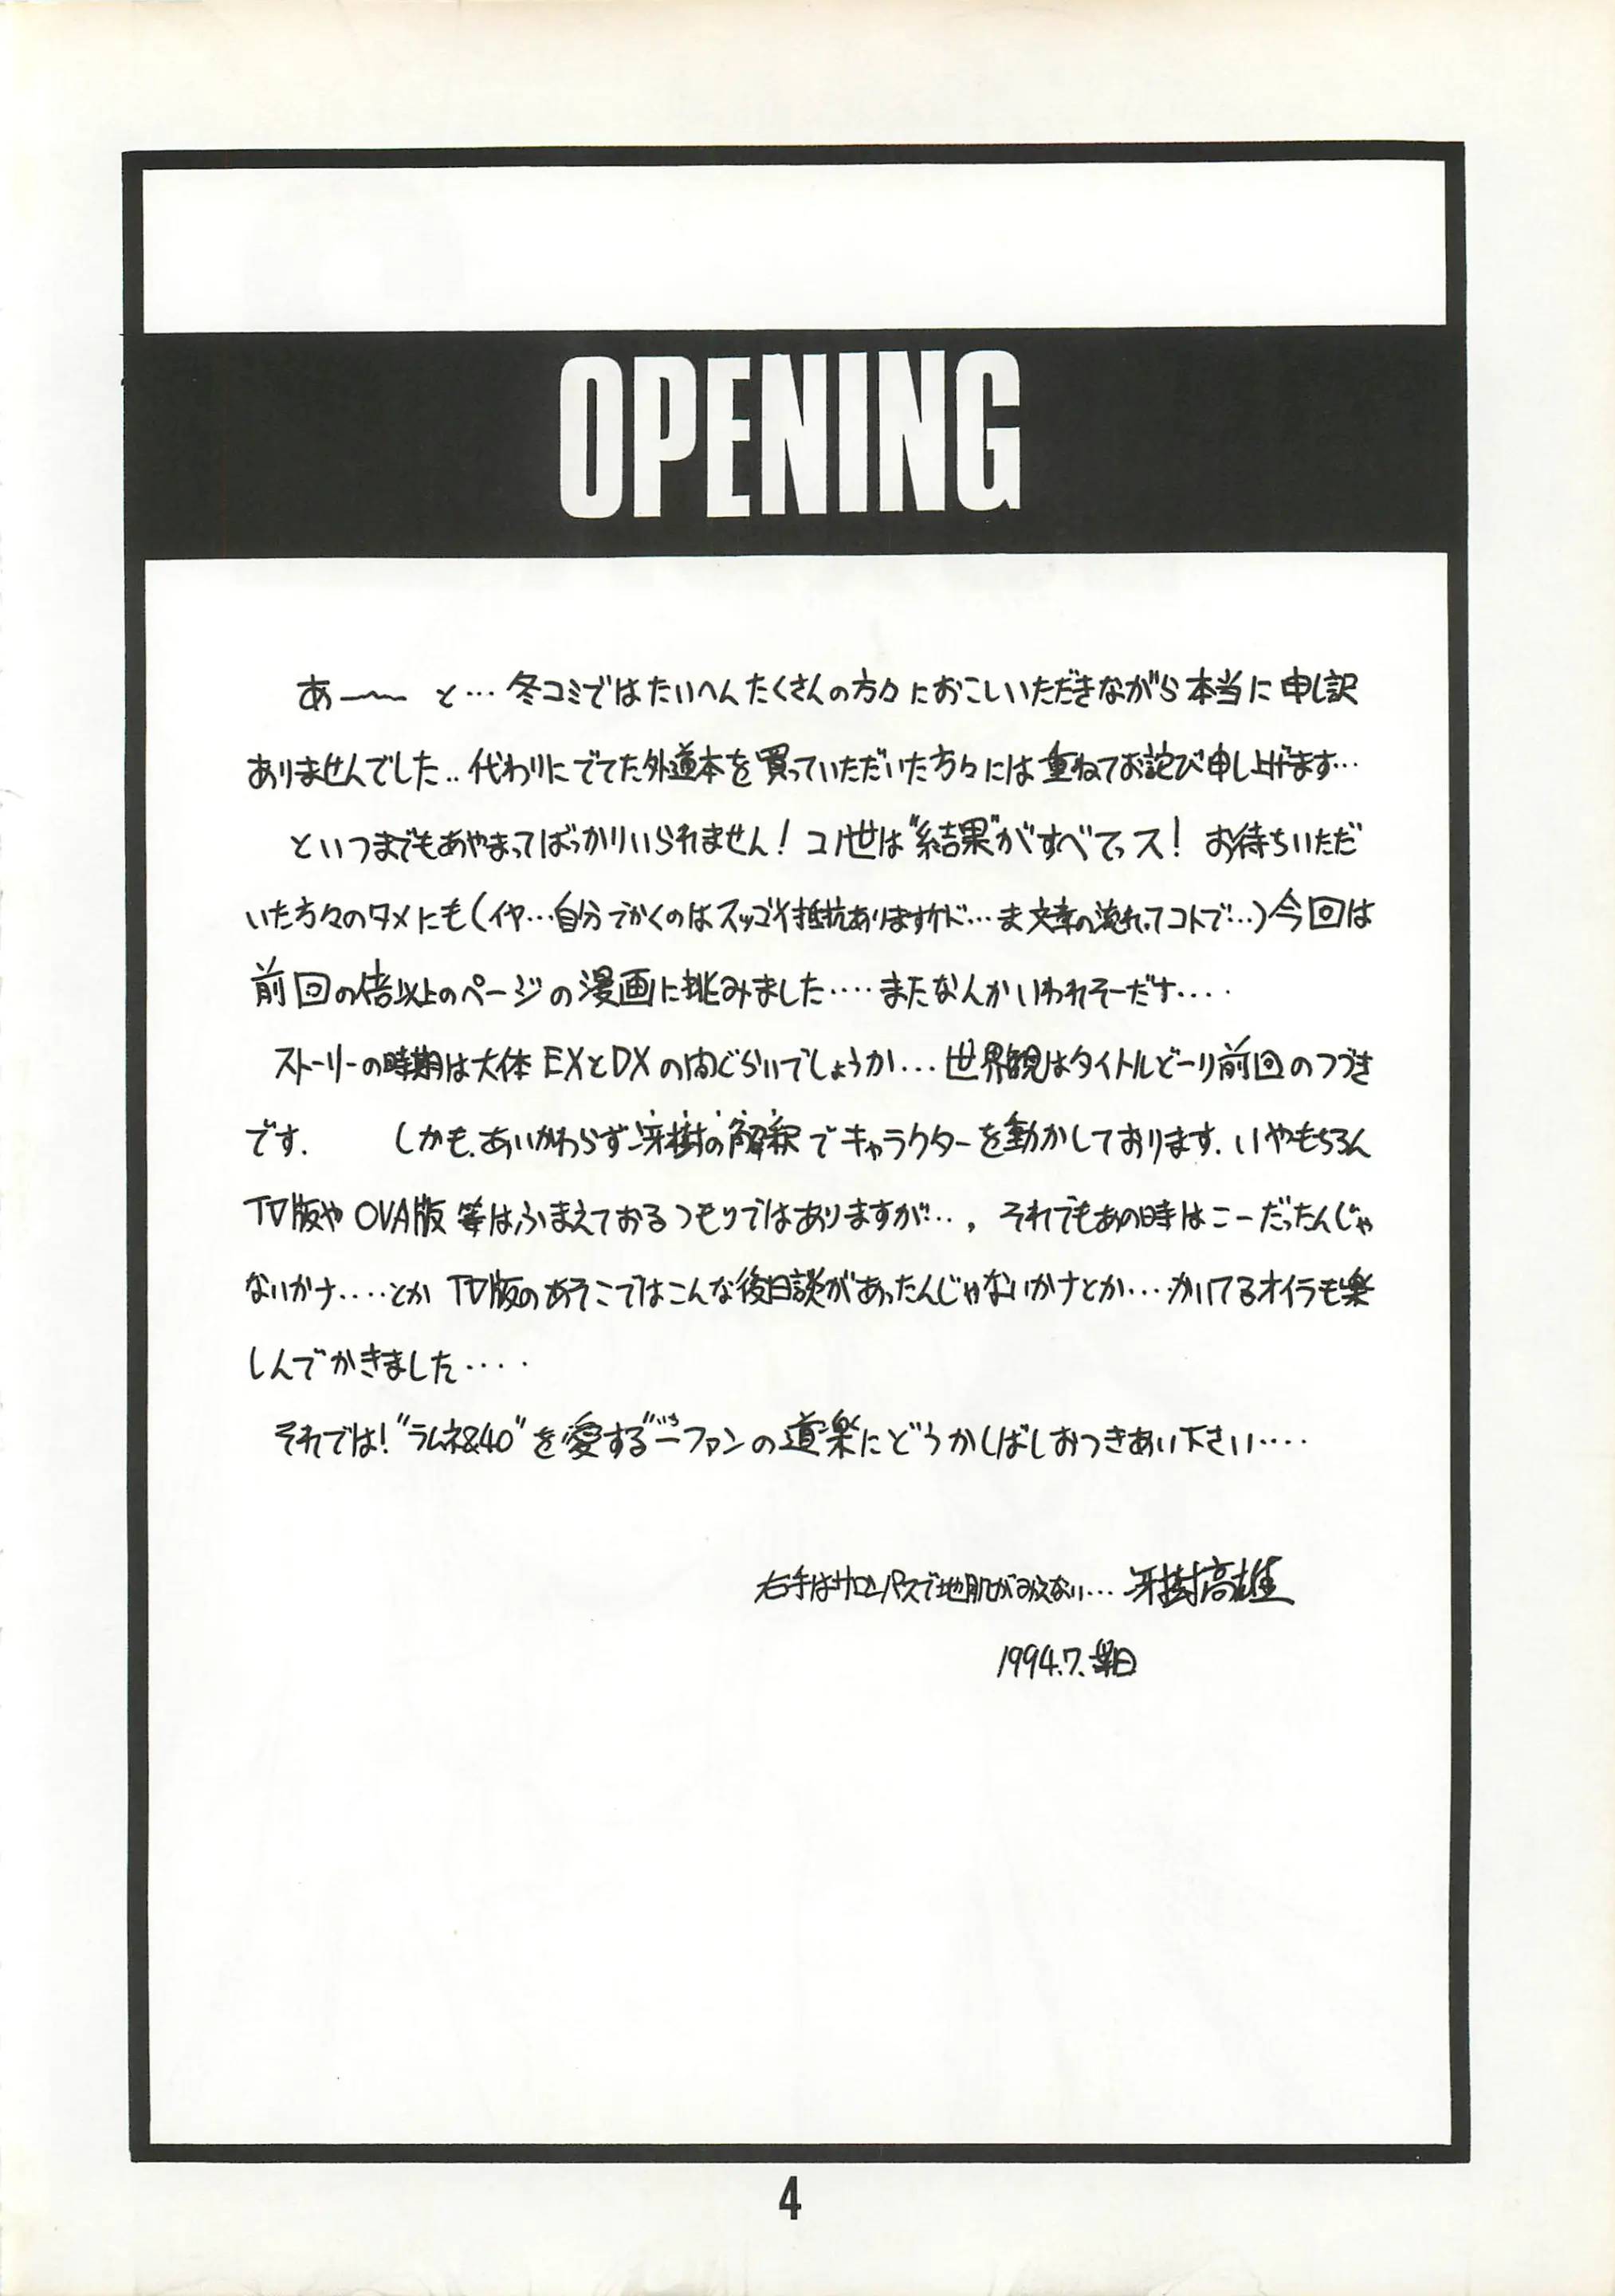 OPENING
あーーー と… 冬コミではたいへんたくさんの方々におこしいただきながら本当に申し訳
ありませんでした.. 代わりにでてた外道本を買っていただいた方々には重ねてお詫び申し上げます…
といつまでもあやまってばっかりいられません! コノ世は"結果"がすべてっス! お待ちいただ
いた方々のタメにも(イヤ…自分でかくのはスッゴイ抵抗ありますケド…ま文章の流れってコトで…)今回は
前回の倍以上のページの漫画に挑みました‥‥またなんかいわれそーだナ‥‥
ストーリーの時期は大体EXとDXの間ぐらいでしょうか…世界観はタイトルどーり前回のつづき
です. しかも、あいかわらず冴樹の解釈でキャラクターを動かしております. いやもちろん
TV版やOVA版等はふまえておるつもりではありますが…, それでもあの時はこーだったんじゃ
ないかナ‥‥とか TV版のあそこではこんな後日談があったんじゃないかナとか‥‥かいてるオイラも楽
しんでかきました‥‥
それでは! "ラムネ&40"を愛する"いち"一ファンの道楽にどうかしばしおつきあい下さい‥‥
右手はサロンパスで地肌がみえない… 冴樹高雄
1994.7.某日
4